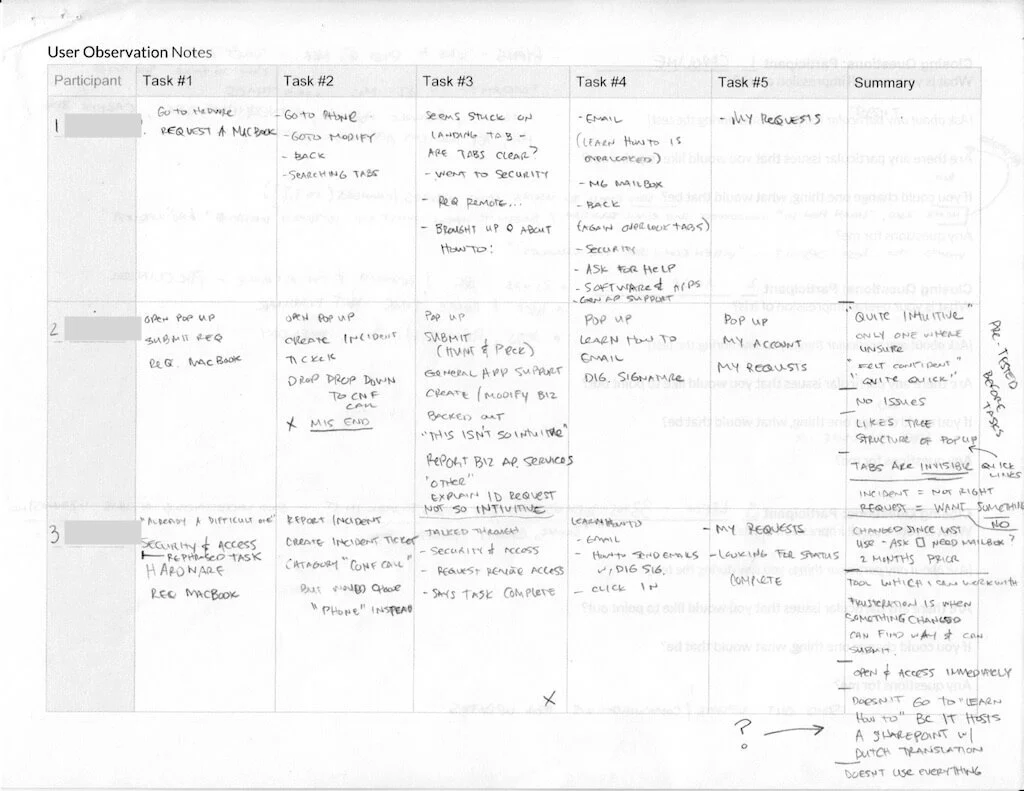 User Observation Notes
Participant Task #1 Task #2 Task #3 Task #4 Task #5 Summary
1
GO TO HARDWARE
REQUEST A MACBOOK
- GO TO PHONE
- GOTO MODIFY
- BACK
- SEARCHING TABS
SEEMS STUCK ON
LANDING TAB -
ARE TABS CLEAR?
- WENT TO SECURITY
- REQ REMOTE...
- BROUGHT UP Q ABOUT
HOW TO:
- EMAIL
(LEARN HOW TO IS
OVERLOOKED)
- MG MAILBOX
- BACK
(AGAIN OVERLOOK TABS)
- SECURITY
- ASK FOR HELP
- SOFTWARE & APPS
- GEN AP SUPPORT
- MY REQUESTS
2
OPEN POP UP
SUBMIT REQ
REQ. MACBOOK
OPEN POP UP
CREATE INCIDENT
TICKET
DROP DROP DOWN
TO CNF
CALL
X MIS END
POP UP
SUBMIT
(HUNT & PECK)
GENERAL APP SUPPORT
CREATE / MODIFY BIZ
BACKED OUT
"THIS ISN'T SO INTUITIVE"
REPORT BIZ AP. SERVICES
"OTHER"
EXPLAIN ID REQUEST
NOT SO INTUITIVE
POP UP
LEARN HOW TO
EMAIL
DIG. SIGNATURE
POP UP
MY ACCOUNT
MY REQUESTS
"QUITE INTUITIVE"
ONLY ONE WHERE
UNSURE
"FELT CONFIDENT"
"QUITE QUICK"
NO ISSUES
LIKES TREE
STRUCTURE OF POP UP
QUICK
LINKS
TABS ARE INVISIBLE
INCIDENT = NOT RIGHT
REQUEST = WANT SOMETHING
NO
PRE-TESTED
BEFORE
TASKS
3
"ALREADY A DIFFICULT ONE"
SECURITY & ACCESS
REPHRASED TASK
HARDWARE
REQ MACBOOK
REPORT INCIDENT
CREATE INCIDENT TICKET
CATAGORY "CONF CALL"
BUT CHOSE
"PHONE" INSTEAD
TALKED THROUGH
- SECURITY & ACCESS
- REQUEST REMOTE ACCESS
- SAYS TASK COMPLETE
X
LEARN HOW TO
- EMAIL
- HOW TO SEND EMAILS
W/ DIG SIG.
- CLICK IN
- MY REQUESTS
- LOOKING FOR STATUS
COMPLETE
CHANGED SINCE LAST
USE - ASK NEED MAILBOX?
2 MONTHS PRIOR
TOOL WHICH I CAN WORK WITH
FRUSTERATION IS WHEN
SOMETHING CHANGED
CAN FIND WAY & CAN
SUBMIT.
OPEN & ACCESS IMMEDIATELY
DOESN'T GO TO "LEARN
HOW TO" BC IT HOSTS
A SHAREPOINT W/
DUTCH TRANSLATION
?
DOESN'T USE EVERYTHING